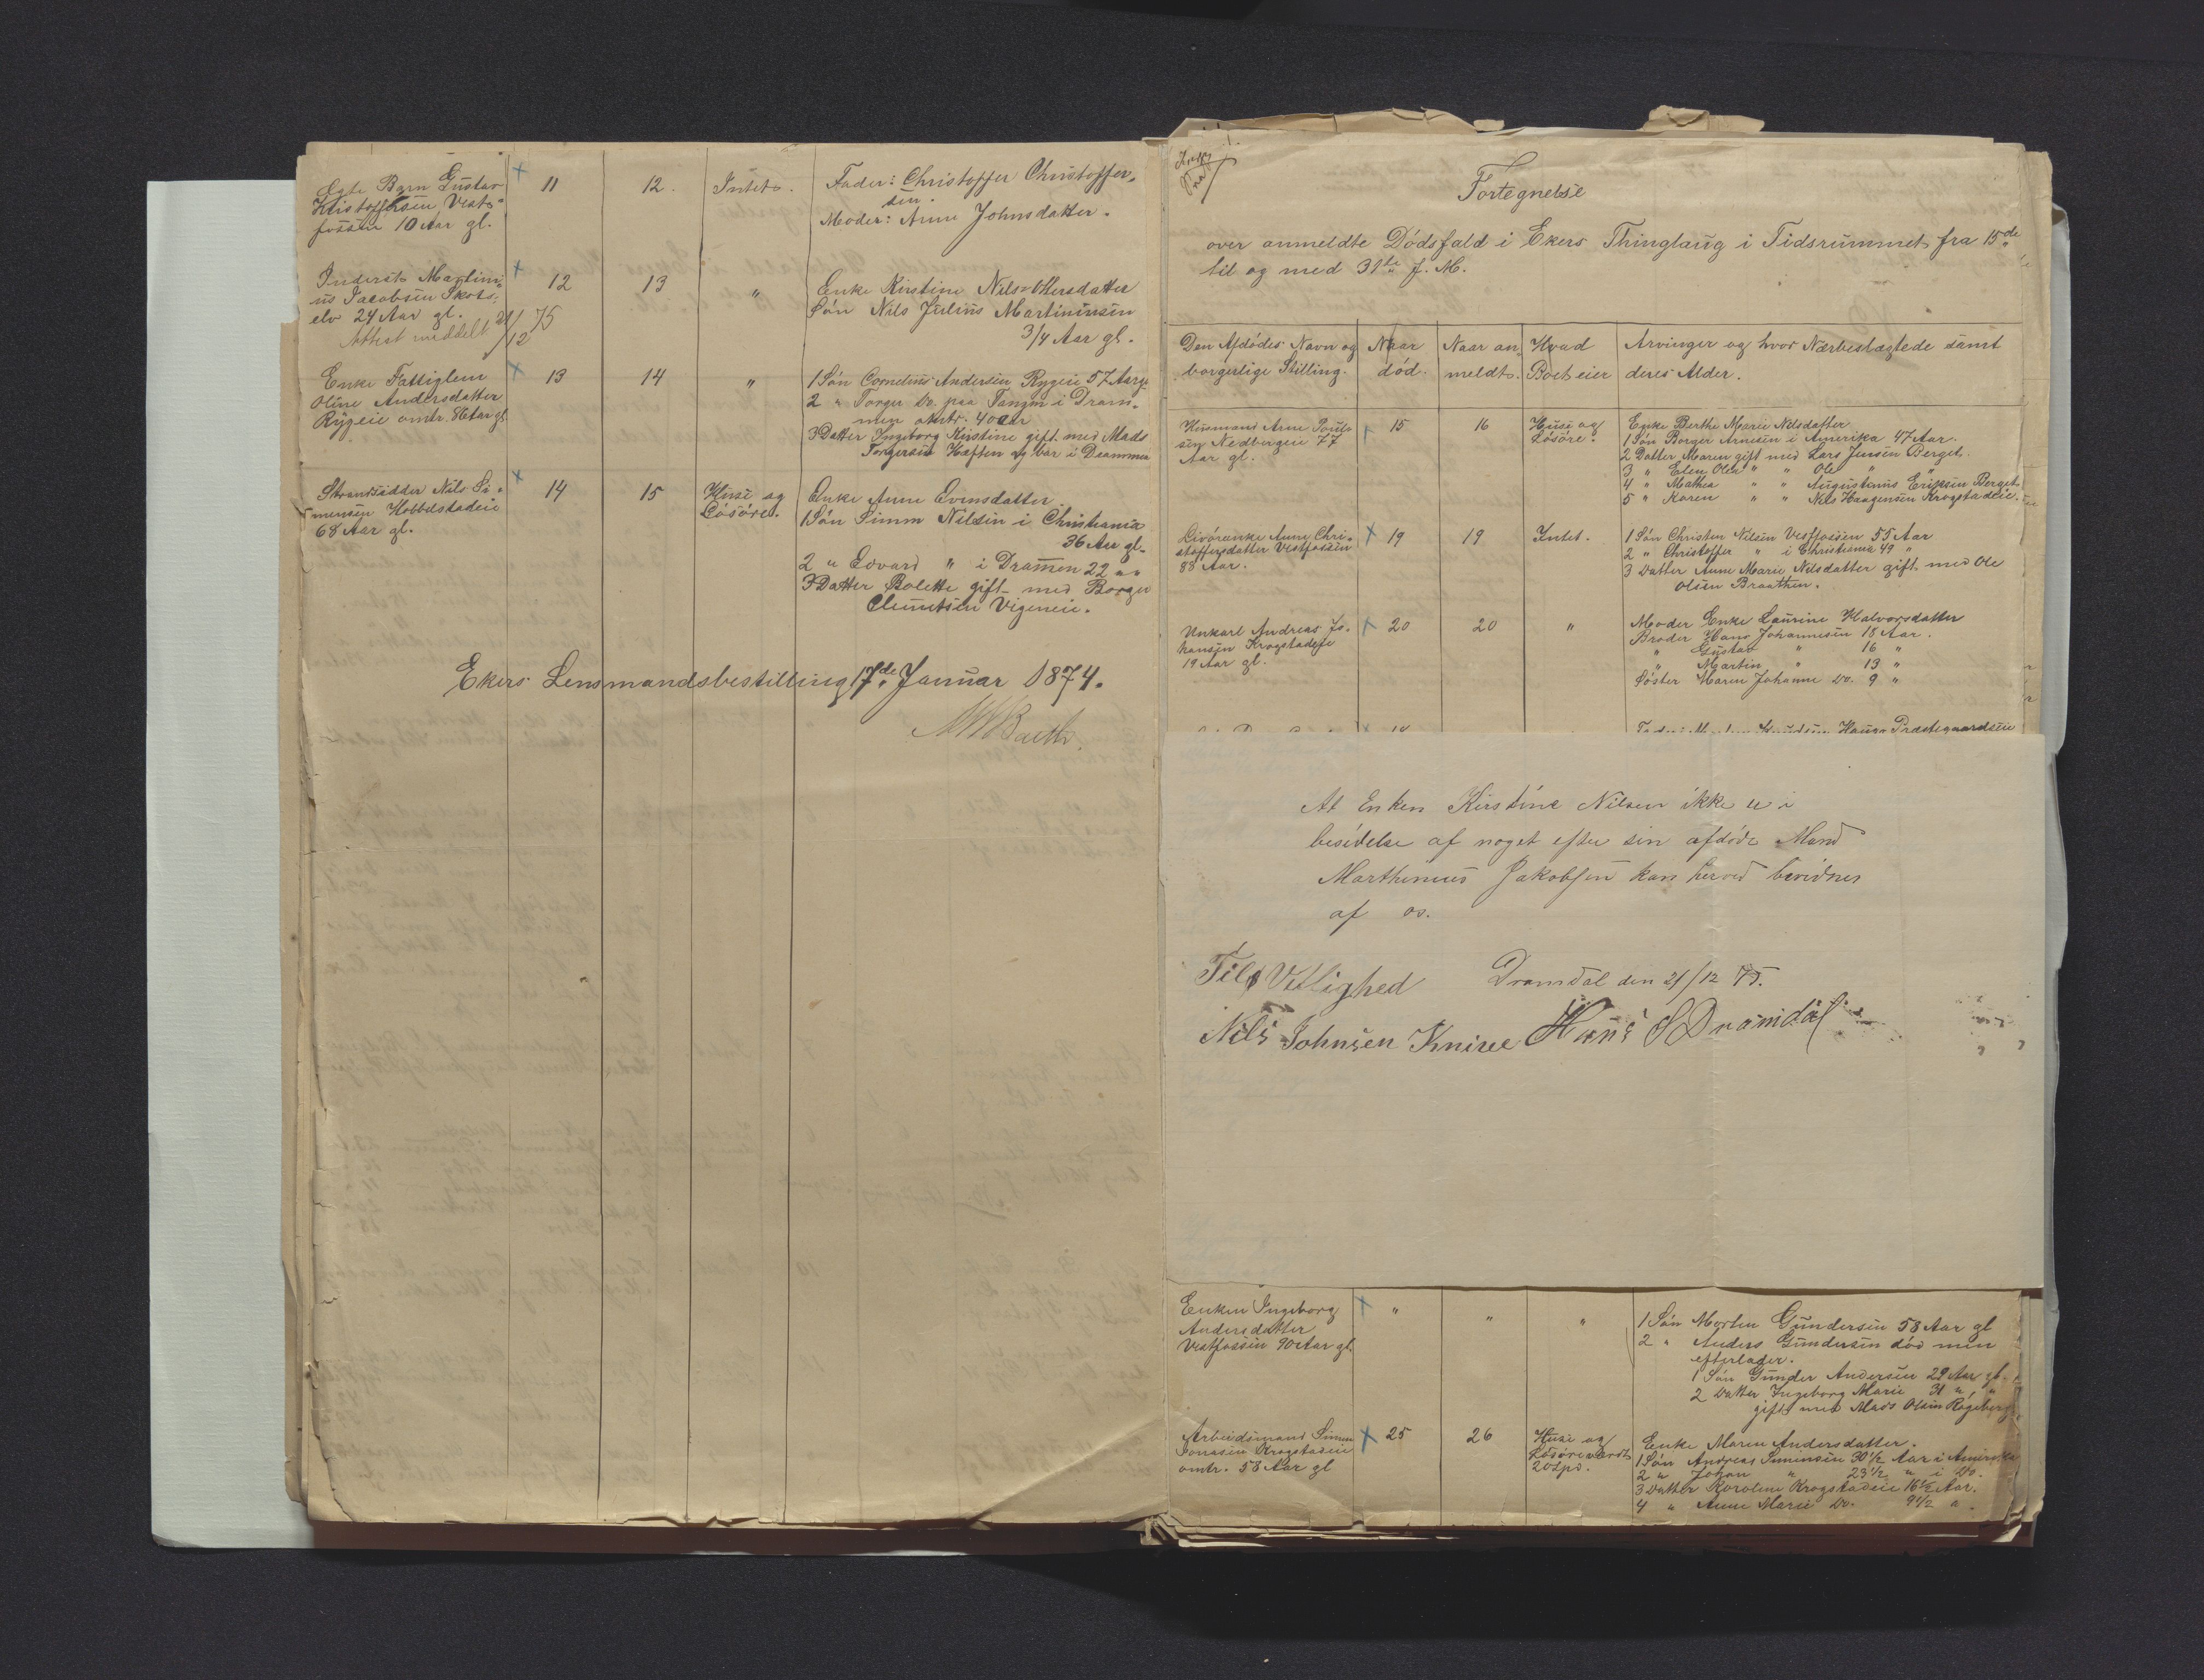 Egte Barn Gustav
Kristoffersen Vest-
fossen 10 Aar gl.
11
12.
Intet.
Fader: Christoffer Christoffer-
sen.
Moder: Anne Johnsdatter.
Inderst Martini-
us Jacobsen Skots-
elv 24 Aar gl.
Attest meddelt 21/12 75
12
13
"
Enke Kirstine Nils Olsersdatter
Søn Nils Julius Martiniusen
3/4 Aar gl.
Enke Fattiglem
Oline Andersdatter
Rygeie omtr. 86 Aar gl
13
14
"
1 Søn Cornelius Andersen Rygeie 57 Aar gl
2 " Torger Do. paa Tangen i Dram-
men omtr. 40 Aar
3 Datter Ingeborg Kirstine gift med Mads
Torgersen Haften og bor i Drammen
Strandsidder Nils Si-
mensen Hobbelstadeie
68 Aar gl.
14
15
Huse og
Løsøre.
Enke Anne Evensdatter
1 Søn Simm Nilsen i Christiania
36 Aar gl.
2 " Edvard " i Drammen 22 " "
3 Datter Bolette gift med Borger
Clemetsen Vegneeie.
Ekers Lensmandsbestilling 17de Januar 1874.
Fortegnelse
over anmeldte Dødsfald i Ekers Thinglaug i Tidsrummet fra 15de
til og med 31te f. M.
Den Afdødes Navn og
borgerlige Stilling.
Naar
død.
Naar an-
meldt.
Hvad
Boet eier
Arvinger og hvor Nærbeslægtede samt
deres Alder.
Husmand Arne Pouls-
sen Nedbergeie 77
Aar gl.
15
16
Huse og
Løsøre.
Enke Berthe Marie Nilsdatter
1 Søn Borger Arnesen i Amerika 47 Aar.
2 Datter Maren gift med Lars Jensen Berget.
3 " Elen Olea " " Ole " "
4 " Mathea " " Augustinus Eriksen Berget
5 " Karen " " Nils Haagensen Krogstadeie.
Livøreenke Anne Chri-
stoffersdatter Vestfossen
83 Aar.
19
19
Intet.
1 Søn Christen Nilsen Vestfossen 55 Aar
2 " Christoffer " i Christiania 49 "
3 Datter Anne Marie Nilsdatter gift med Ole
Olsen Braathen.
Unkarl Andreas Jo-
hansen Krogstadeie
19 Aar gl.
20
20
"
Moder Enke Laurine Halvorsdatter
Broder Hans Johannesen 18 Aar.
" Gustav " 16 "
" Martin " 13 "
Søster Maren Johanne Do. 9 "
At Enken Kirstine Nilsen ikke er i
besidelse af noget efter sin afdøde Mand
Marthinius Jakobsen kan herved bevidnes
af os.
Til Vitlighed Dramdal den 21/12 75.
Nils Johnsen Knive Hans S Dramdal
Enken Ingeborg
Andersdatter
Vestfossen 90 Aar gl.
"
"
"
1 Søn Morten Gundersen 53 Aar gl
2 " Anders Gundersen død men
efterlader.
1 Søn Gunder Andersen 29 Aar gl.
2 Datter Ingeborg Marie 31 " "
gift med Mads Olsen Røgeberg
Arbeidsmand Simen
Jonasen Krogstadeie
omtr. 53 Aar gl
25
26
Huse og
Løsøre værdt
20 Spd.
Enke Maren Andersdatter.
1 Søn Andreas Simensen 30 1/2 Aar i Amerika
2 " Johan " 23 1/2 " i Do.
3 Datter Karoline Krogstadeie 16 1/2 Aar.
4 " Anne Marie Do. 9 1/2 ".